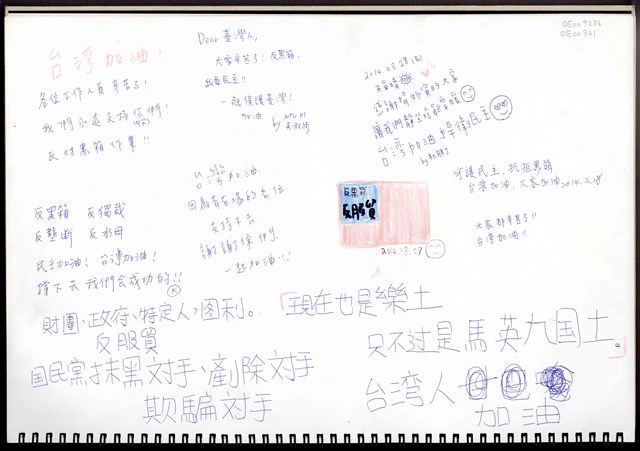 台湾加油!
各位工作人員辛苦了!
我們永遠支持你們!
反對黑箱作業!!
Dear 臺灣人,
大家辛苦了!反黑箱
救民主!!
一起保護臺灣!
加油
by NTU PT
2014.03.28(五)
天氣晴
感謝捐物資的大家
讓我們靜坐
台灣加油 捍衛民主
守護民主,抗拒黑箱
台灣加油,大家加油 2014.3.28
大家都辛苦了!!
台湾加油!!
台灣加油.
因為有在場的各位.
支持下去.
謝謝你們.
一起加油:)
反黑箱
反服貿
2014.03.28
反黑箱 反獨裁
反壟斷 反水母
民主加油!台湾加油!
撐下去 我們会成功的!!
K
財團、政府、特定人,图利。
反服貿
国民党抹黑对手、剷除对手
欺騙对手
「現在也是樂土
只不过是馬英九国土。」
台湾人
加油
OE009286
OE00321